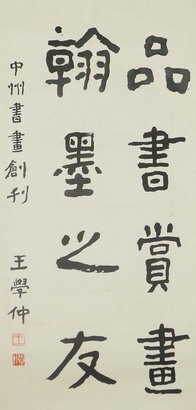 品書賞畫
翰墨之友
中州書畫創刊
王學仲